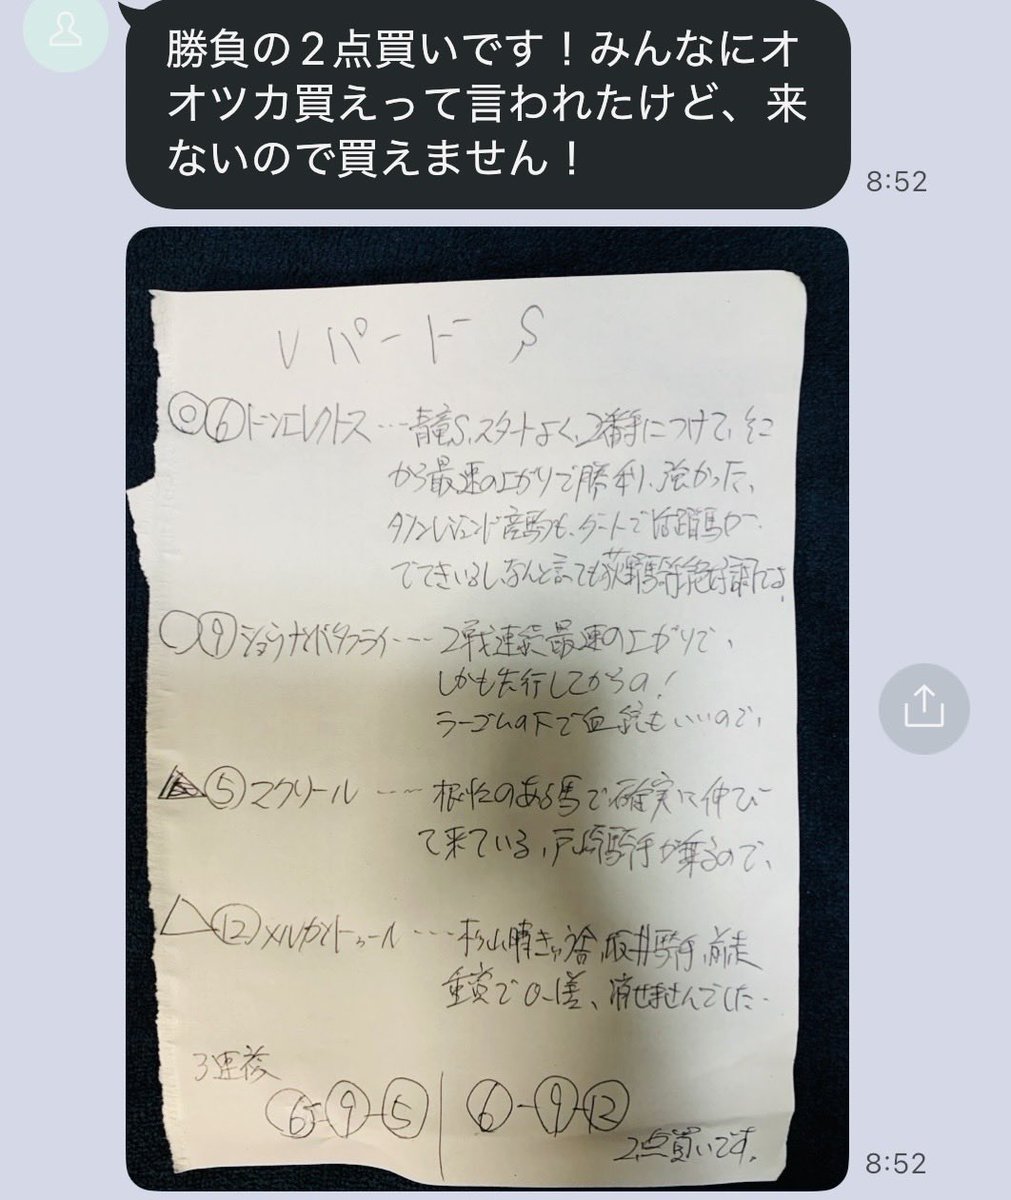 勝負の2点買いです！みんなにオ
オツカ買えって言われたけど、来
ないので買えません！
8:52
レパードS
◎⑥ドンエレクトス…青竜S、スタートよく、2番手につけて、そこ
から最速の上がりで勝利、強かった、
タノンレジェンド産駒も、ダートで活躍馬が
でてきいるし、なんと言っても荻野騎手絶好調です！
○⑨ショウナンバタフライ…2戦連続最速の上がりで、
しかも先行してからの！
ラーゴムの下で血統もいいので、
▲⑤マクリール…根性のある馬で確実に伸び
て来ている、戸崎騎手が乗るので、
△⑫メルカントゥール…杉山晴きゅう舎、坂井騎手、前走
重賞で0.1差、消せませんでした。
3連複
⑥-⑨-⑤ ⑥-⑨-⑫
2点買いです。
8:52